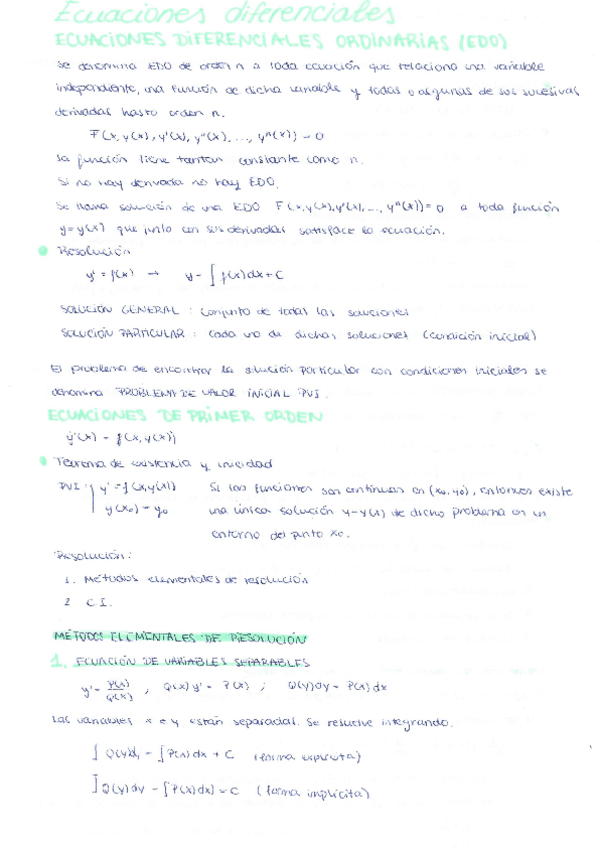 Ecuaciones diferenciales
ECUACIONES DIFERENCIALES ORDINARIAS (EDO)
Se denomina EDO de orden n a toda ecuación que relaciona una variable
independiente, una función de dicha variable y todas o algunas de sus sucesivas
derivadas hasta orden n.
F(x, y(x), y'(x), y''(x), ..., yⁿ(x)) = 0
La función tiene tantan constante como n.
Si no hay derivada no hay EDO.
Se llama solución de una EDO F(x, y(x), y'(x), ..., yⁿ(x)) = 0 a toda función
y = y(x) que junto con sus derivadas satisface la ecuación.
Resolución
y' = f(x) → y = ∫ f(x)dx + C
SOLUCIÓN GENERAL : conjunto de todas las soluciones
SOLUCIÓN PARTICULAR : cada una de dichas soluciones (condición inicial)
El problema de encontrar la solución particular con condiciones iniciales se
denomina PROBLEMA DE VALOR INICIAL PVI.
ECUACIONES DE PRIMER ORDEN
y'(x) = f(x, y(x))
Teorema de existencia y unicidad
PVI { y' = f(x, y(x)) Si las funciones son continuas en (x₀, y₀), entonces existe
y(x₀) = y₀ una única solución y = y(x) de dicho problema en un
entorno del punto x₀.
Resolución:
1. Métodos elementales de resolución
2 C.I.
MÉTODOS ELEMENTALES DE RESOLUCIÓN
1. ECUACIÓN DE VARIABLES SEPARABLES
y' = P(x)/Q(x) ; Q(x) y' = P(x) ; Q(y)dy = P(x)dx
Las variables x e y están separadas. Se resuelve integrando.
∫ Q(y)dy = ∫ P(x)dx + C (forma explícita)
∫ Q(y)dy - ∫ P(x)dx = C (forma implícita)